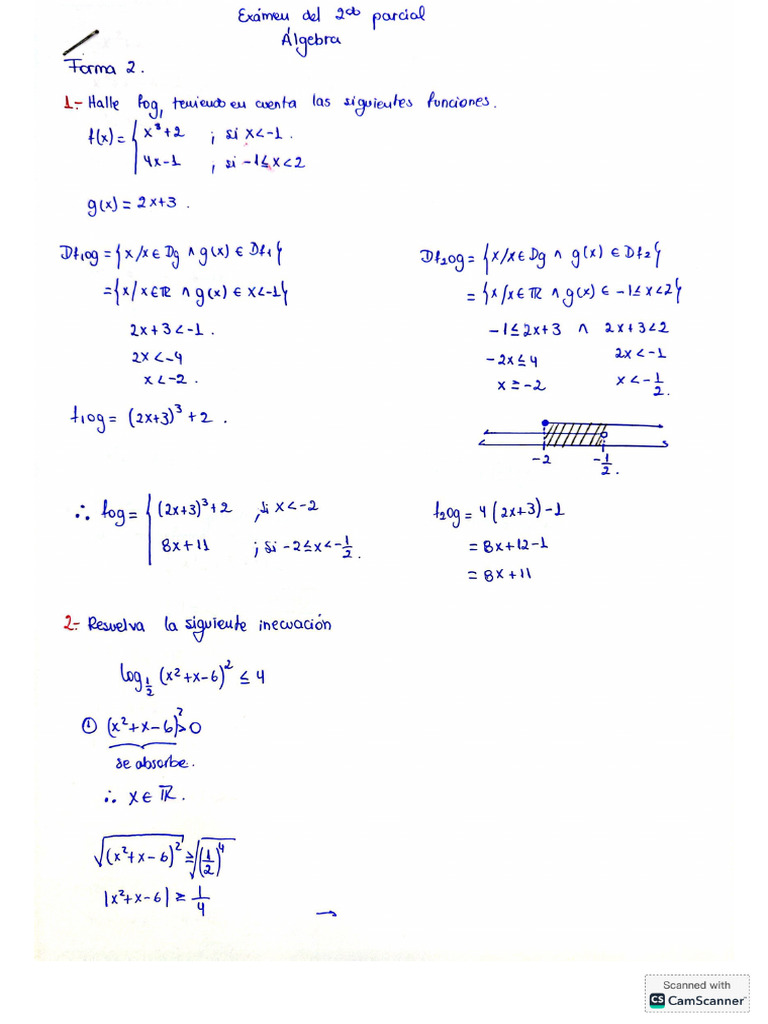 Exámen del 2do parcial
Álgebra
Forma 2.
1.- Halle fog, teniendo en cuenta las siguientes funciones.
f(x) = { x³+2 ; si x<-1.
4x-1 , si -1≤x<2
g(x) = 2x+3.
Df₁og = {x/x∈Dg ∧ g(x)∈Df₁}
= {x/x∈ℝ ∧ g(x)∈ x<-1}
2x+3<-1.
2x<-4
x<-2.
f₁og = (2x+3)³+2.
Df₂og = {x/x∈Dg ∧ g(x)∈Df₂}
= {x/x∈ℝ ∧ g(x)∈ -1≤x<2}
-1≤2x+3 ∧ 2x+3<2
-2x≤4 2x<-1
x≥-2 x<-1/2.
-2 -1/2.
∴ fog = { (2x+3)³+2 , si x<-2
8x+11 ; si -2≤x<-1/2.
f₂og = 4(2x+3)-1
= 8x+12-1
= 8x+11
2.- Resuelva la siguiente inecuación
log½ (x²+x-6)² ≤ 4
① (x²+x-6)²>0
se absorbe.
∴ x∈ℝ.
√(x²+x-6)² ≥ √(1/2)⁴
|x²+x-6| ≥ 1/4
→
Scanned with
CS CamScanner